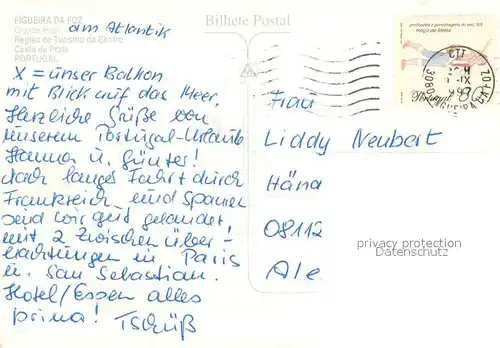 FIGUEIRA DA FOZ
Grande Hotel
Região de Turismo do Centro
Costa de Prata
PORTUGAL
am Atlantik
Bilhete Postal
X = unser Balkon
mit Blick auf das Meer.
Herzliche Grüße von
unserem Portugal-Urlaub
Hanna u. Günter!
Nach langer Fahrt durch
Frankreich und Spanien
sind wir gut gelandet,
mit 2 Zwischenüber-
nachtungen in Paris
u. San Sebastian.
Hotel/Essen alles
prima! Tschüß
profissões e personagens do séc. XIX
moço de fretes
Portugal 80
CTT
3080 FIGUEIRA DA FOZ
Frau
Liddy Neubert
Händ
08112
privacy protection
Datenschutz